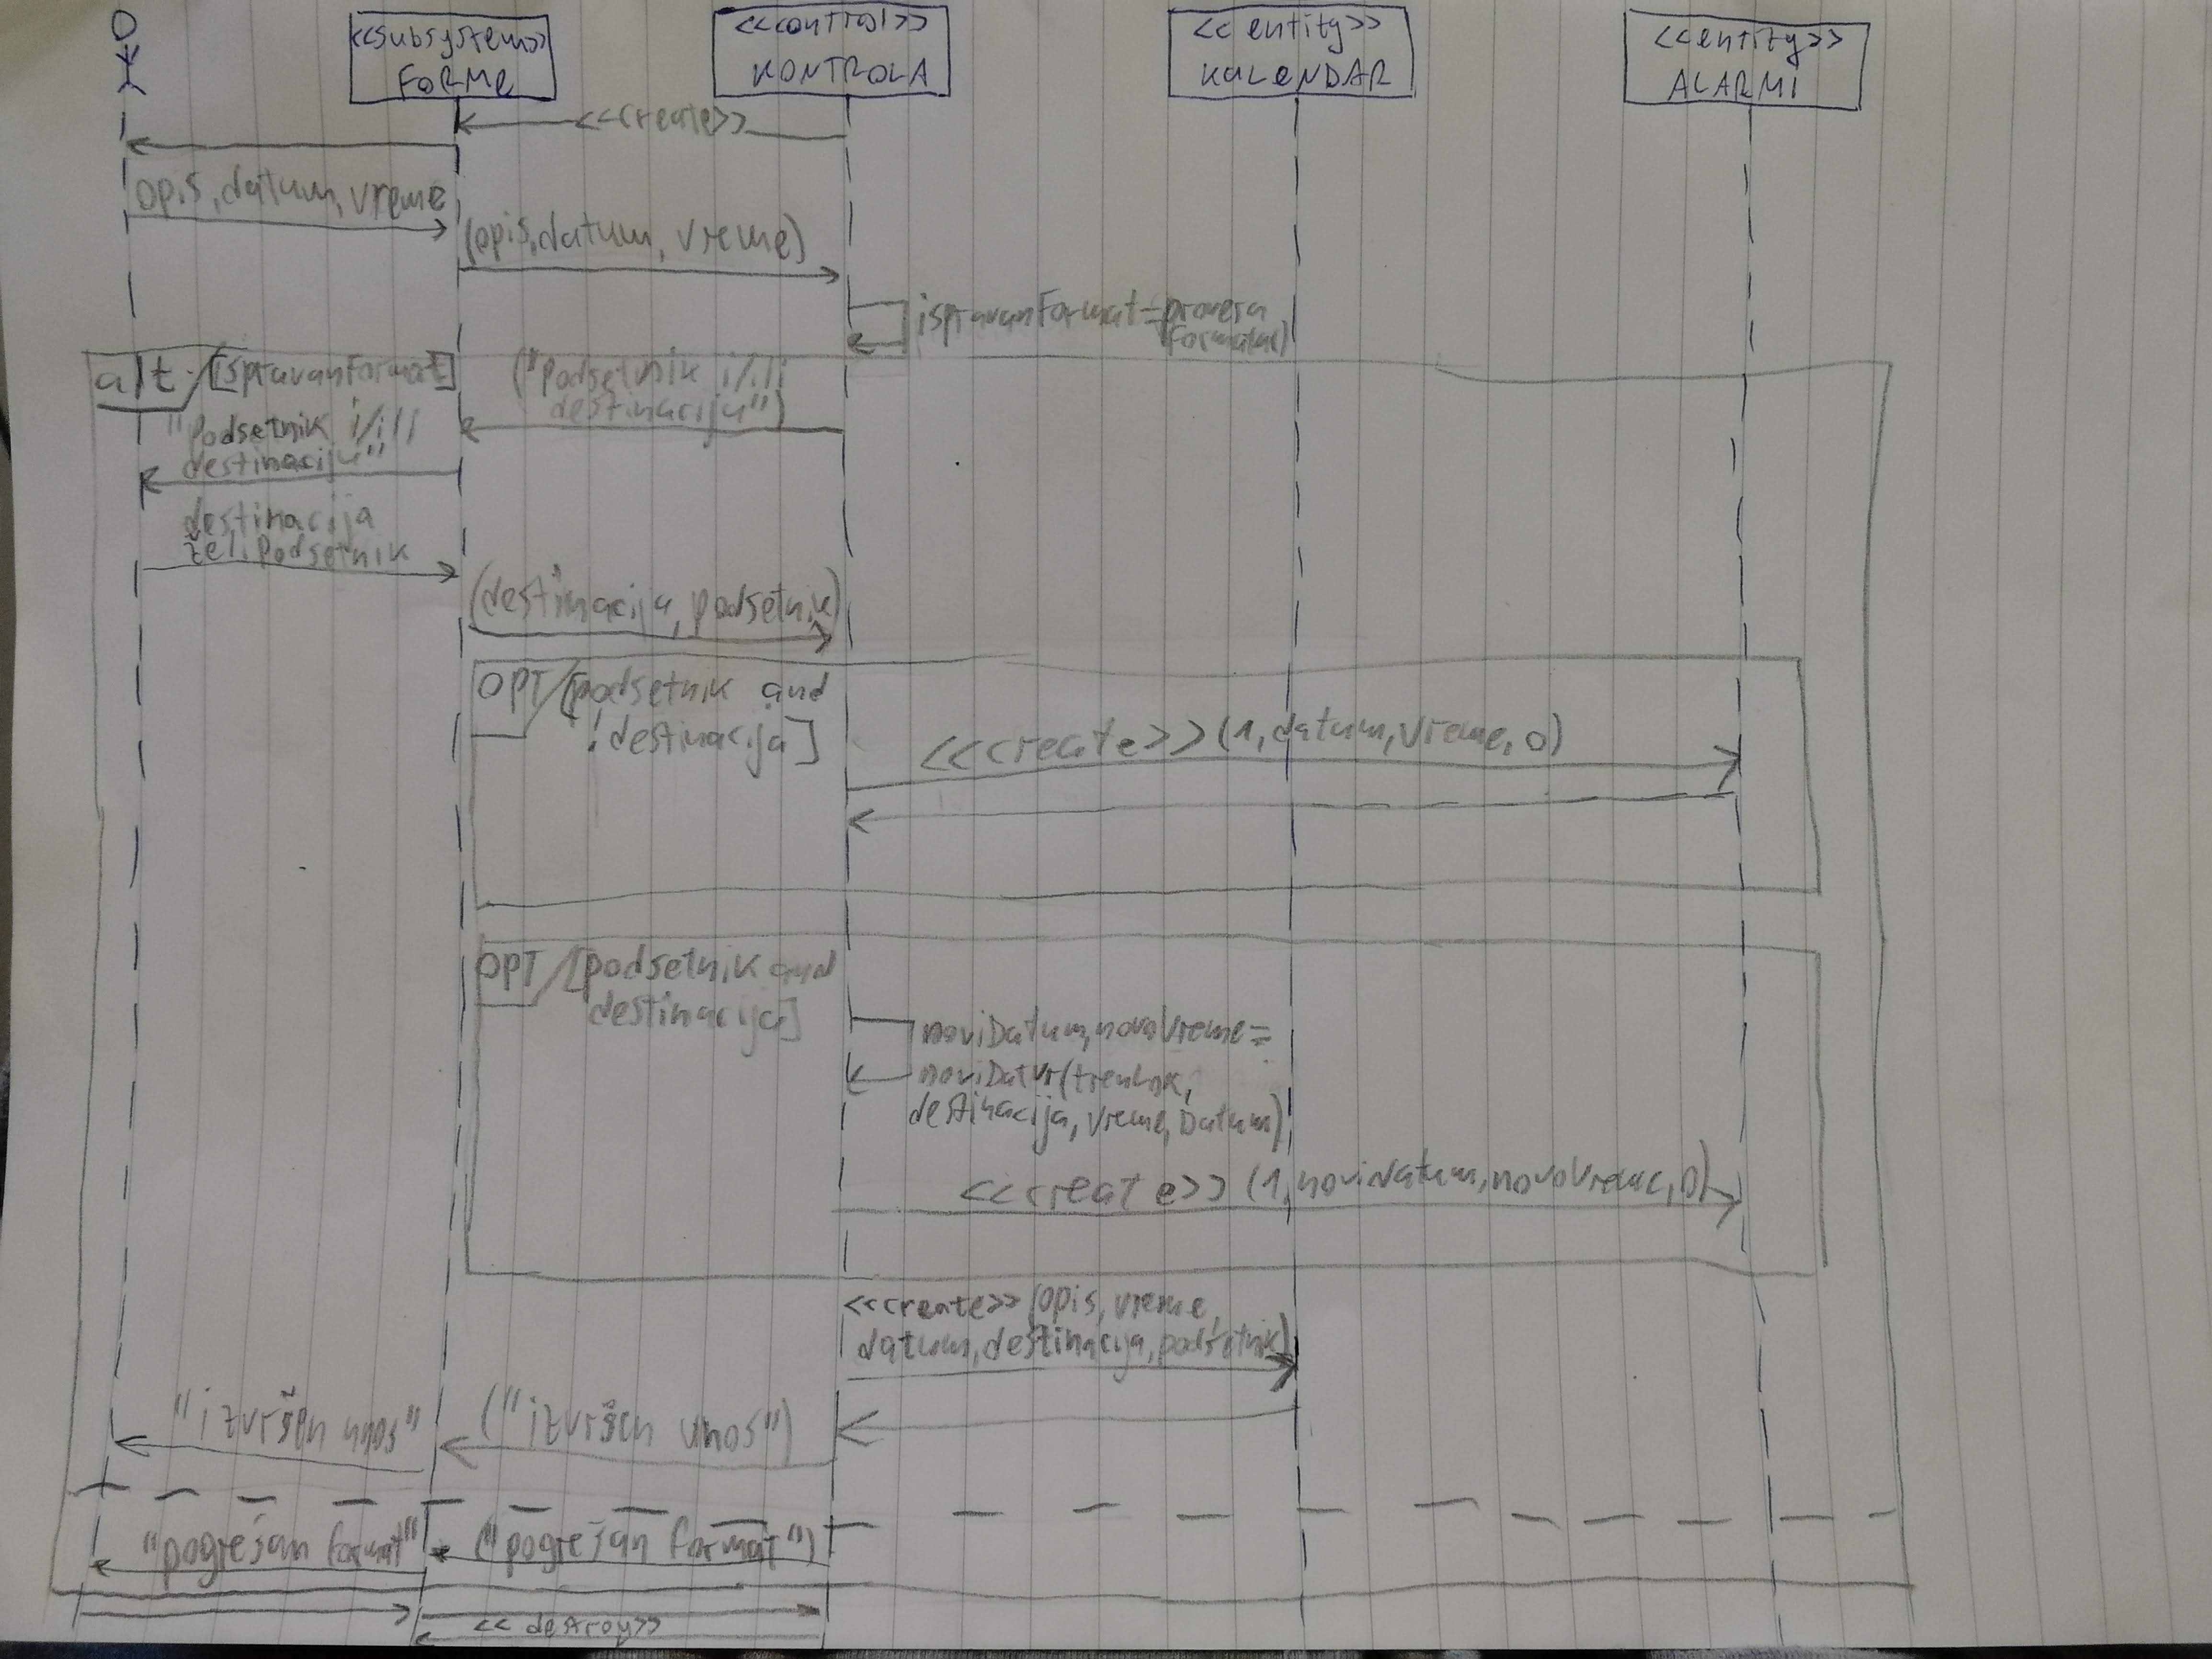 <<subsystem>>
FORMe
<<control>>
KONTROLA
<<entity>>
KaLeNDAR
<<entity>>
ALARMI
<<create>>
opis, datum, vreme
(opis, datum, vreme)
ispravanFormat=provera
Formata()
alt [ispravanFormat]
("Podsetnik i/ili
destinaciju")
"Podsetnik i/ili
destinaciju"
destinacija
želiPodsetnik
(destinacija, podsetnik)
OPT [podsetnik and
!destinacija]
<<create>> (1, datum, vreme, 0)
OPT [podsetnik and
destinacija]
noviDatum, novoVreme=
noviDatVr(trenLok,
destinacija, vreme, Datum)
<<create>> (1, novidatum, novoVreme, 0)
<<create>> (opis, vreme,
datum, destinacija, podsetnik)
"izvršen unos"
("izvršen unos")
"pogrešan format"
("pogrešan format")
<<destroy>>